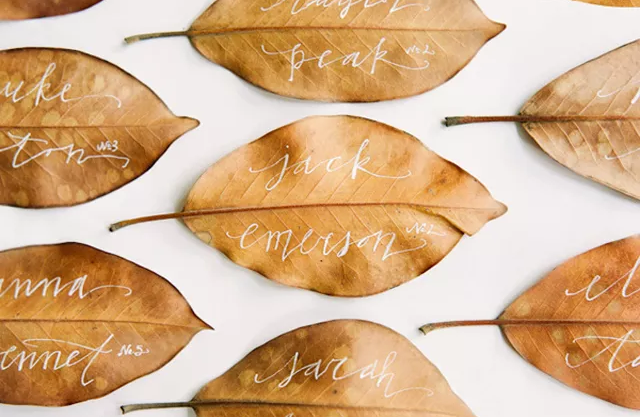 peak No.2
uke
ton No.3
jack
emerson No.2
anna
ennet No.5
sarah
el